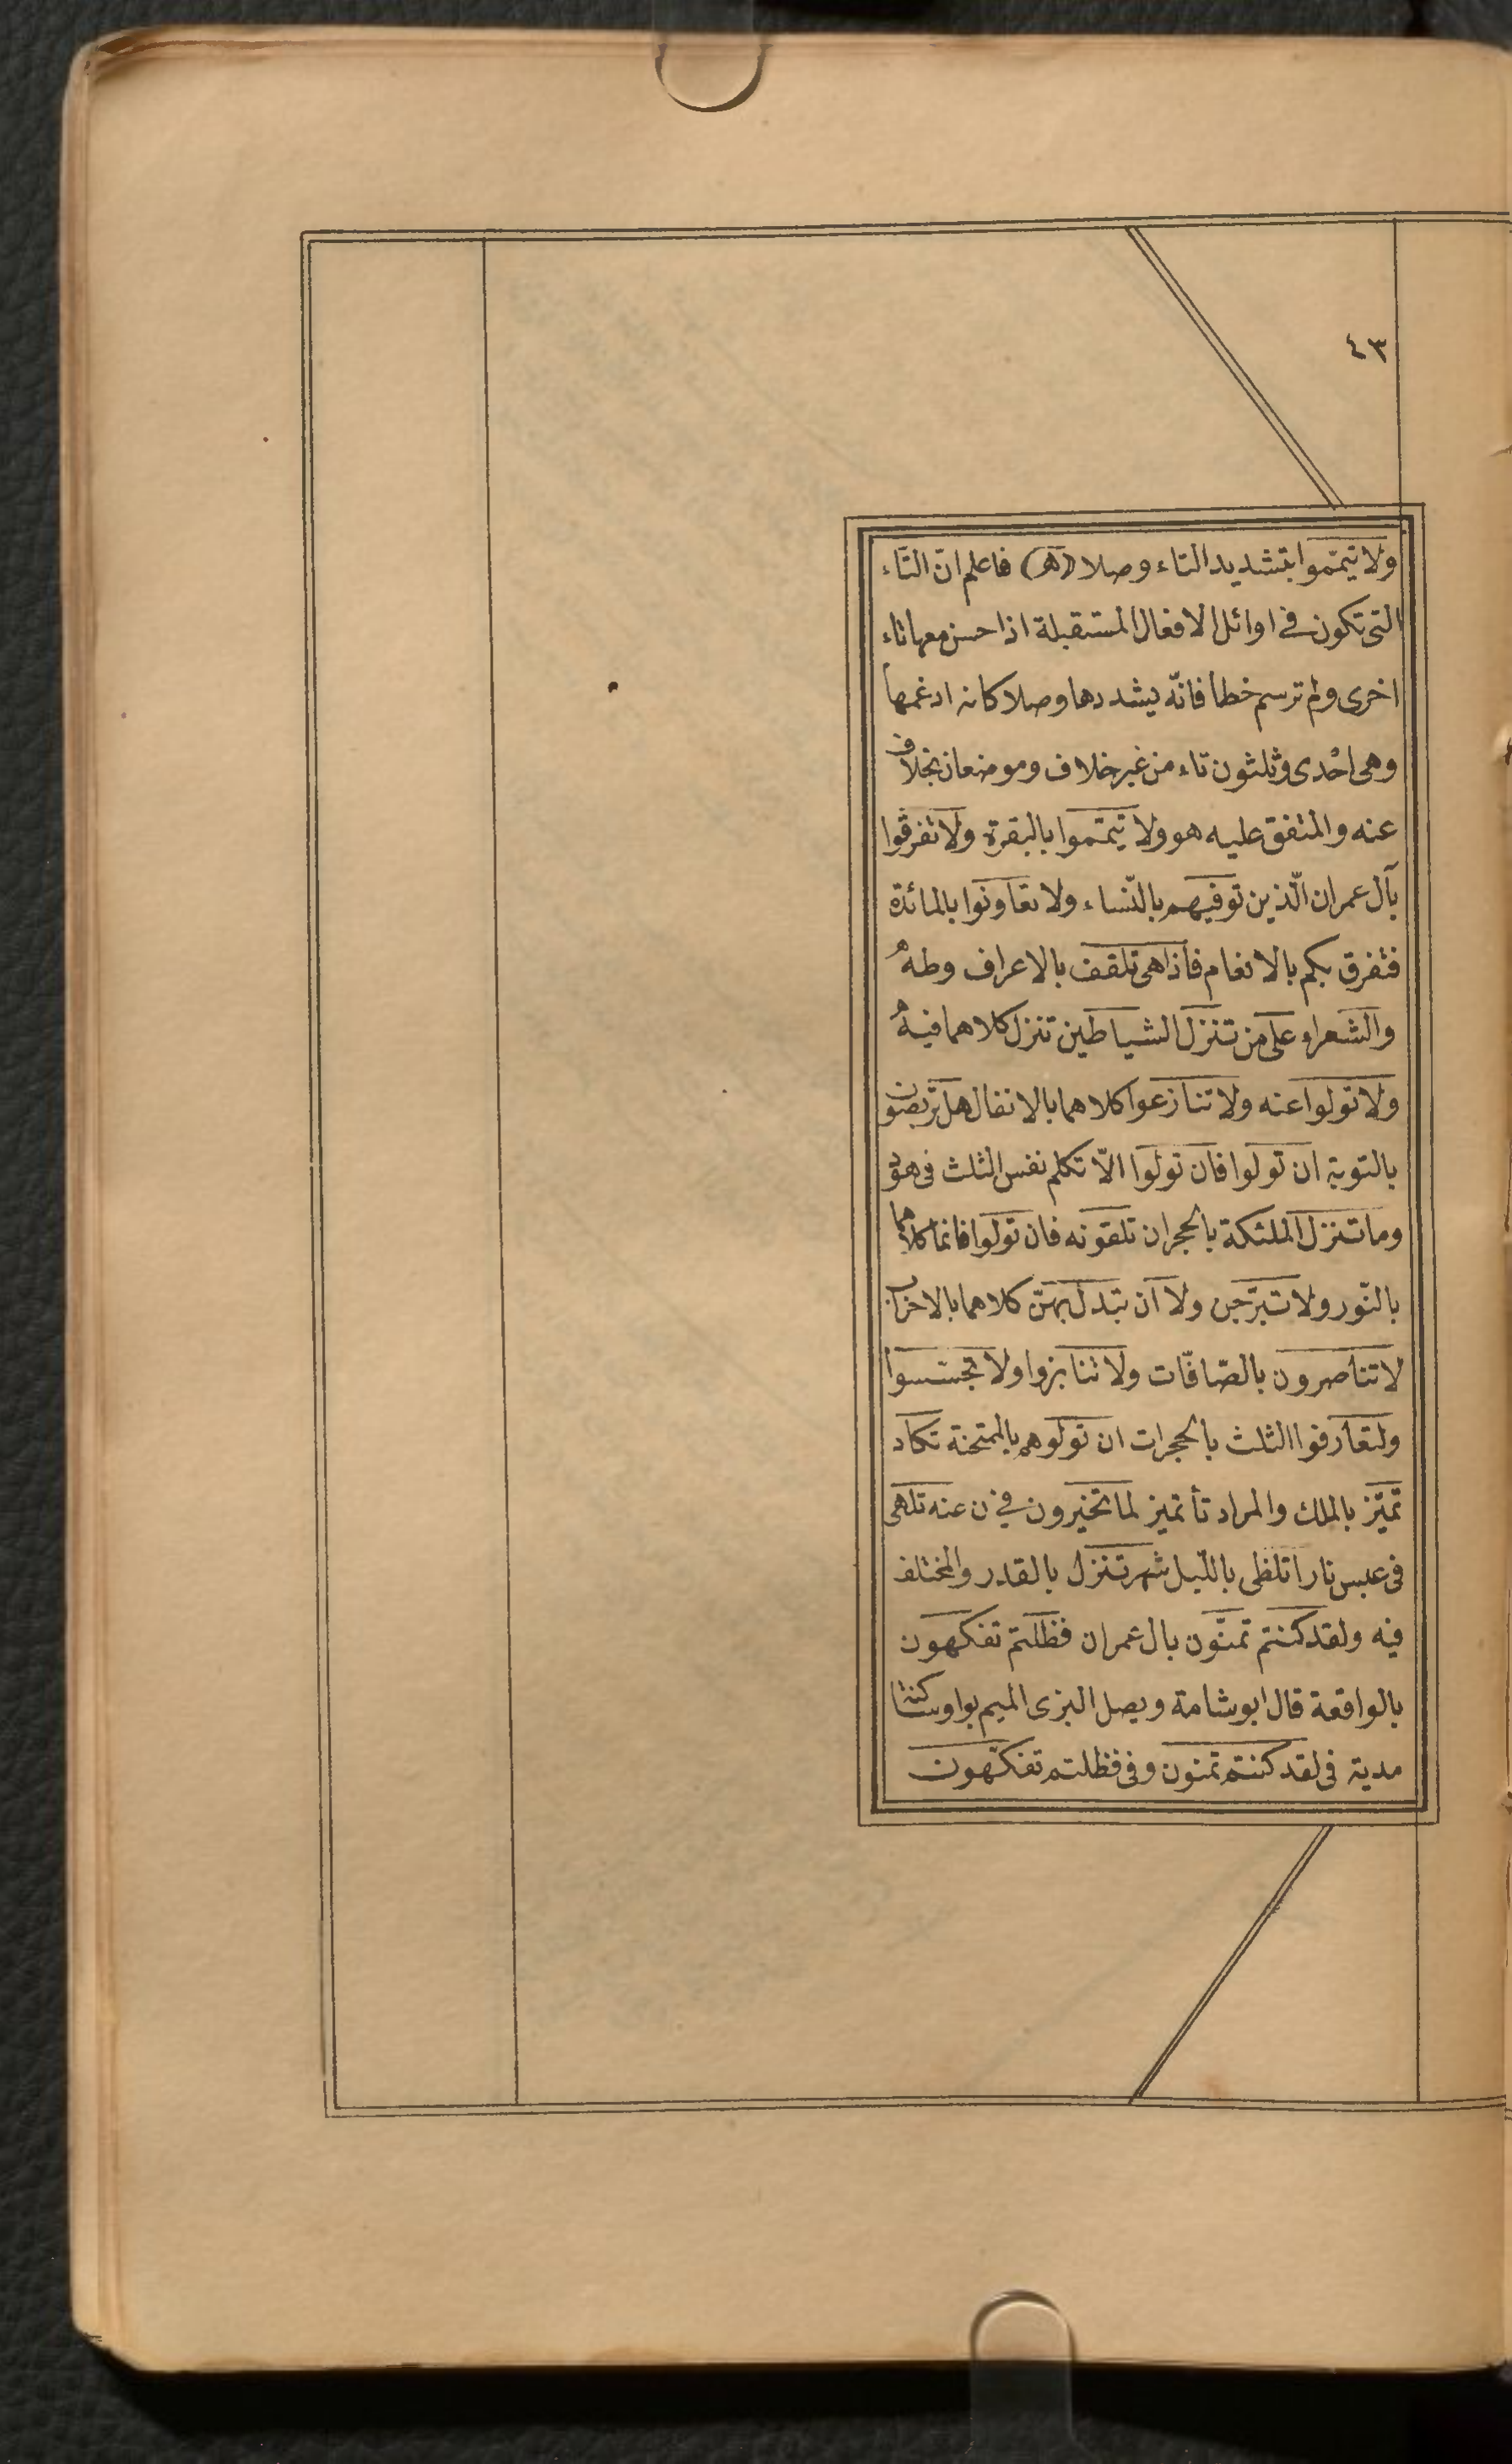 ٤٣
ولا تيمّموا بتشديد التاء وصلا (هـ) فاعلم انّ التّاء
التى تكون فى اوائل الافعال المستقبلة اذا حسن معها تاء
اخرى ولم ترسم خطا فانّه يشددها وصلا كانه ادغمها
وهى احْدى وثلثون تاء من غير خلاف وموضعان بخلاف
عنه والمتفق عليه هو ولا تيمّموا بالبقرة ولا تفرقوا
بآل عمران الّذين توفيهم بالنّساء ولا تعاونوا بالمائدة
فتفرق بكم بالانعام فاذا هى تلقف بالاعراف وطه
والشعراء على من تنزل الشياطين تنزل كلاهما فيه
ولا تولوا عنه ولا تنازعوا كلاهما بالانفال هل تربصون
بالتوبة ان تولوا فان تولوا الّا تكلم نفس الثلث فى هود
وما تنزل الملئكة بالحجر ان تلقونه فان تولوا فانما كلاهما
بالنّور ولا تبرّجن ولا ان تبدل بهنّ كلاهما بالاحزاب
لا تناصرون بالصّافّات ولا تنابزوا ولا تجسّسوا
ولتعارفوا الثلث بالحجرات ان تولوهم بالممتحنة تكاد
تميّز بالملك والمراد تا تميز لما تخيرون فى ن عنه تلهى
فى عبس نارا تلظى باللّيل شهر تنزل بالقدر والمختلف
فيه ولقد كنتم تمنّون بال عمران فظلتم تفكهون
بالواقعة قال ابو شامة ويصل البزى الميم بواو ساكنة
مدية فى لقد كنتم تمنون وفى فظلتم تفكّهون